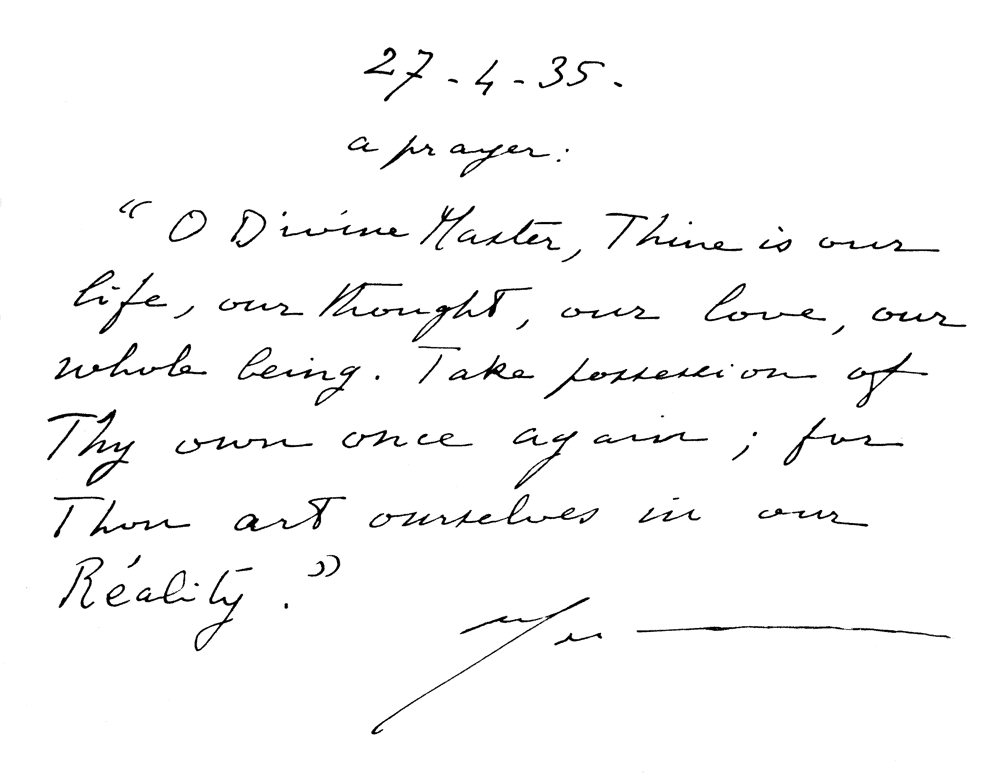 27-4-35.
a prayer:
“ O Divine Master, Thine is our
life, our thought, our love, our
whole being. Take possession of
Thy own once again; for
Thou art ourselves in our
Réality.”